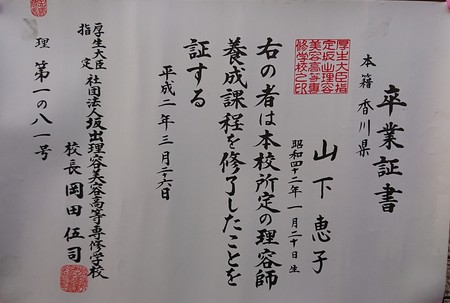 卒業証書
本籍 香川県
山下恵子
昭和四十二年一月二十日生
厚生大臣指
定坂出理容
美容高等専
修学校之印
右の者は本校所定の理容師
養成課程を修了したことを
証する
平成二年三月二六日
厚生大臣
指定
社団法人坂出理容美容高等専修学校
校長 岡田伍司
理 第一の八一号